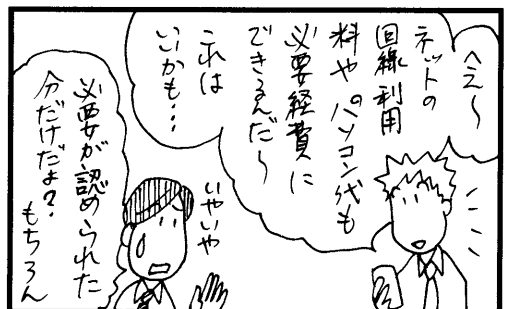 へえ〜
ネットの
回線利用
料や パソコン代も
必要経費に
できるんだ〜
これは
いいかも…
いやいや
必要が認められた
分だけだよ?
もちろん